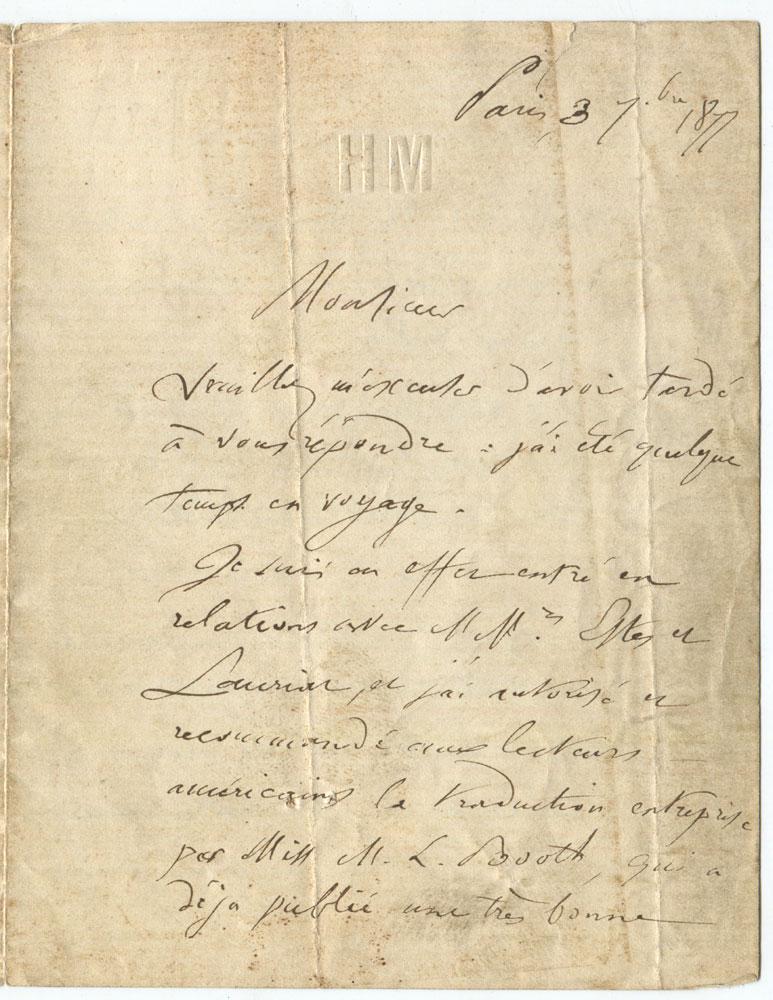 Paris, 3 7.bre 1877
HM
Monsieur
Veuillez m'excuser d'avoir tardé
à vous répondre : j'ai été quelque
temps en voyage.
Je suis en effet entré en
relations avec MM.rs Estes et
Lauriat, et j'ai autorisé et
recommandé aux lecteurs
américains la traduction entreprise
par Miss M. L. Booth, qui a
déjà publié une très bonne